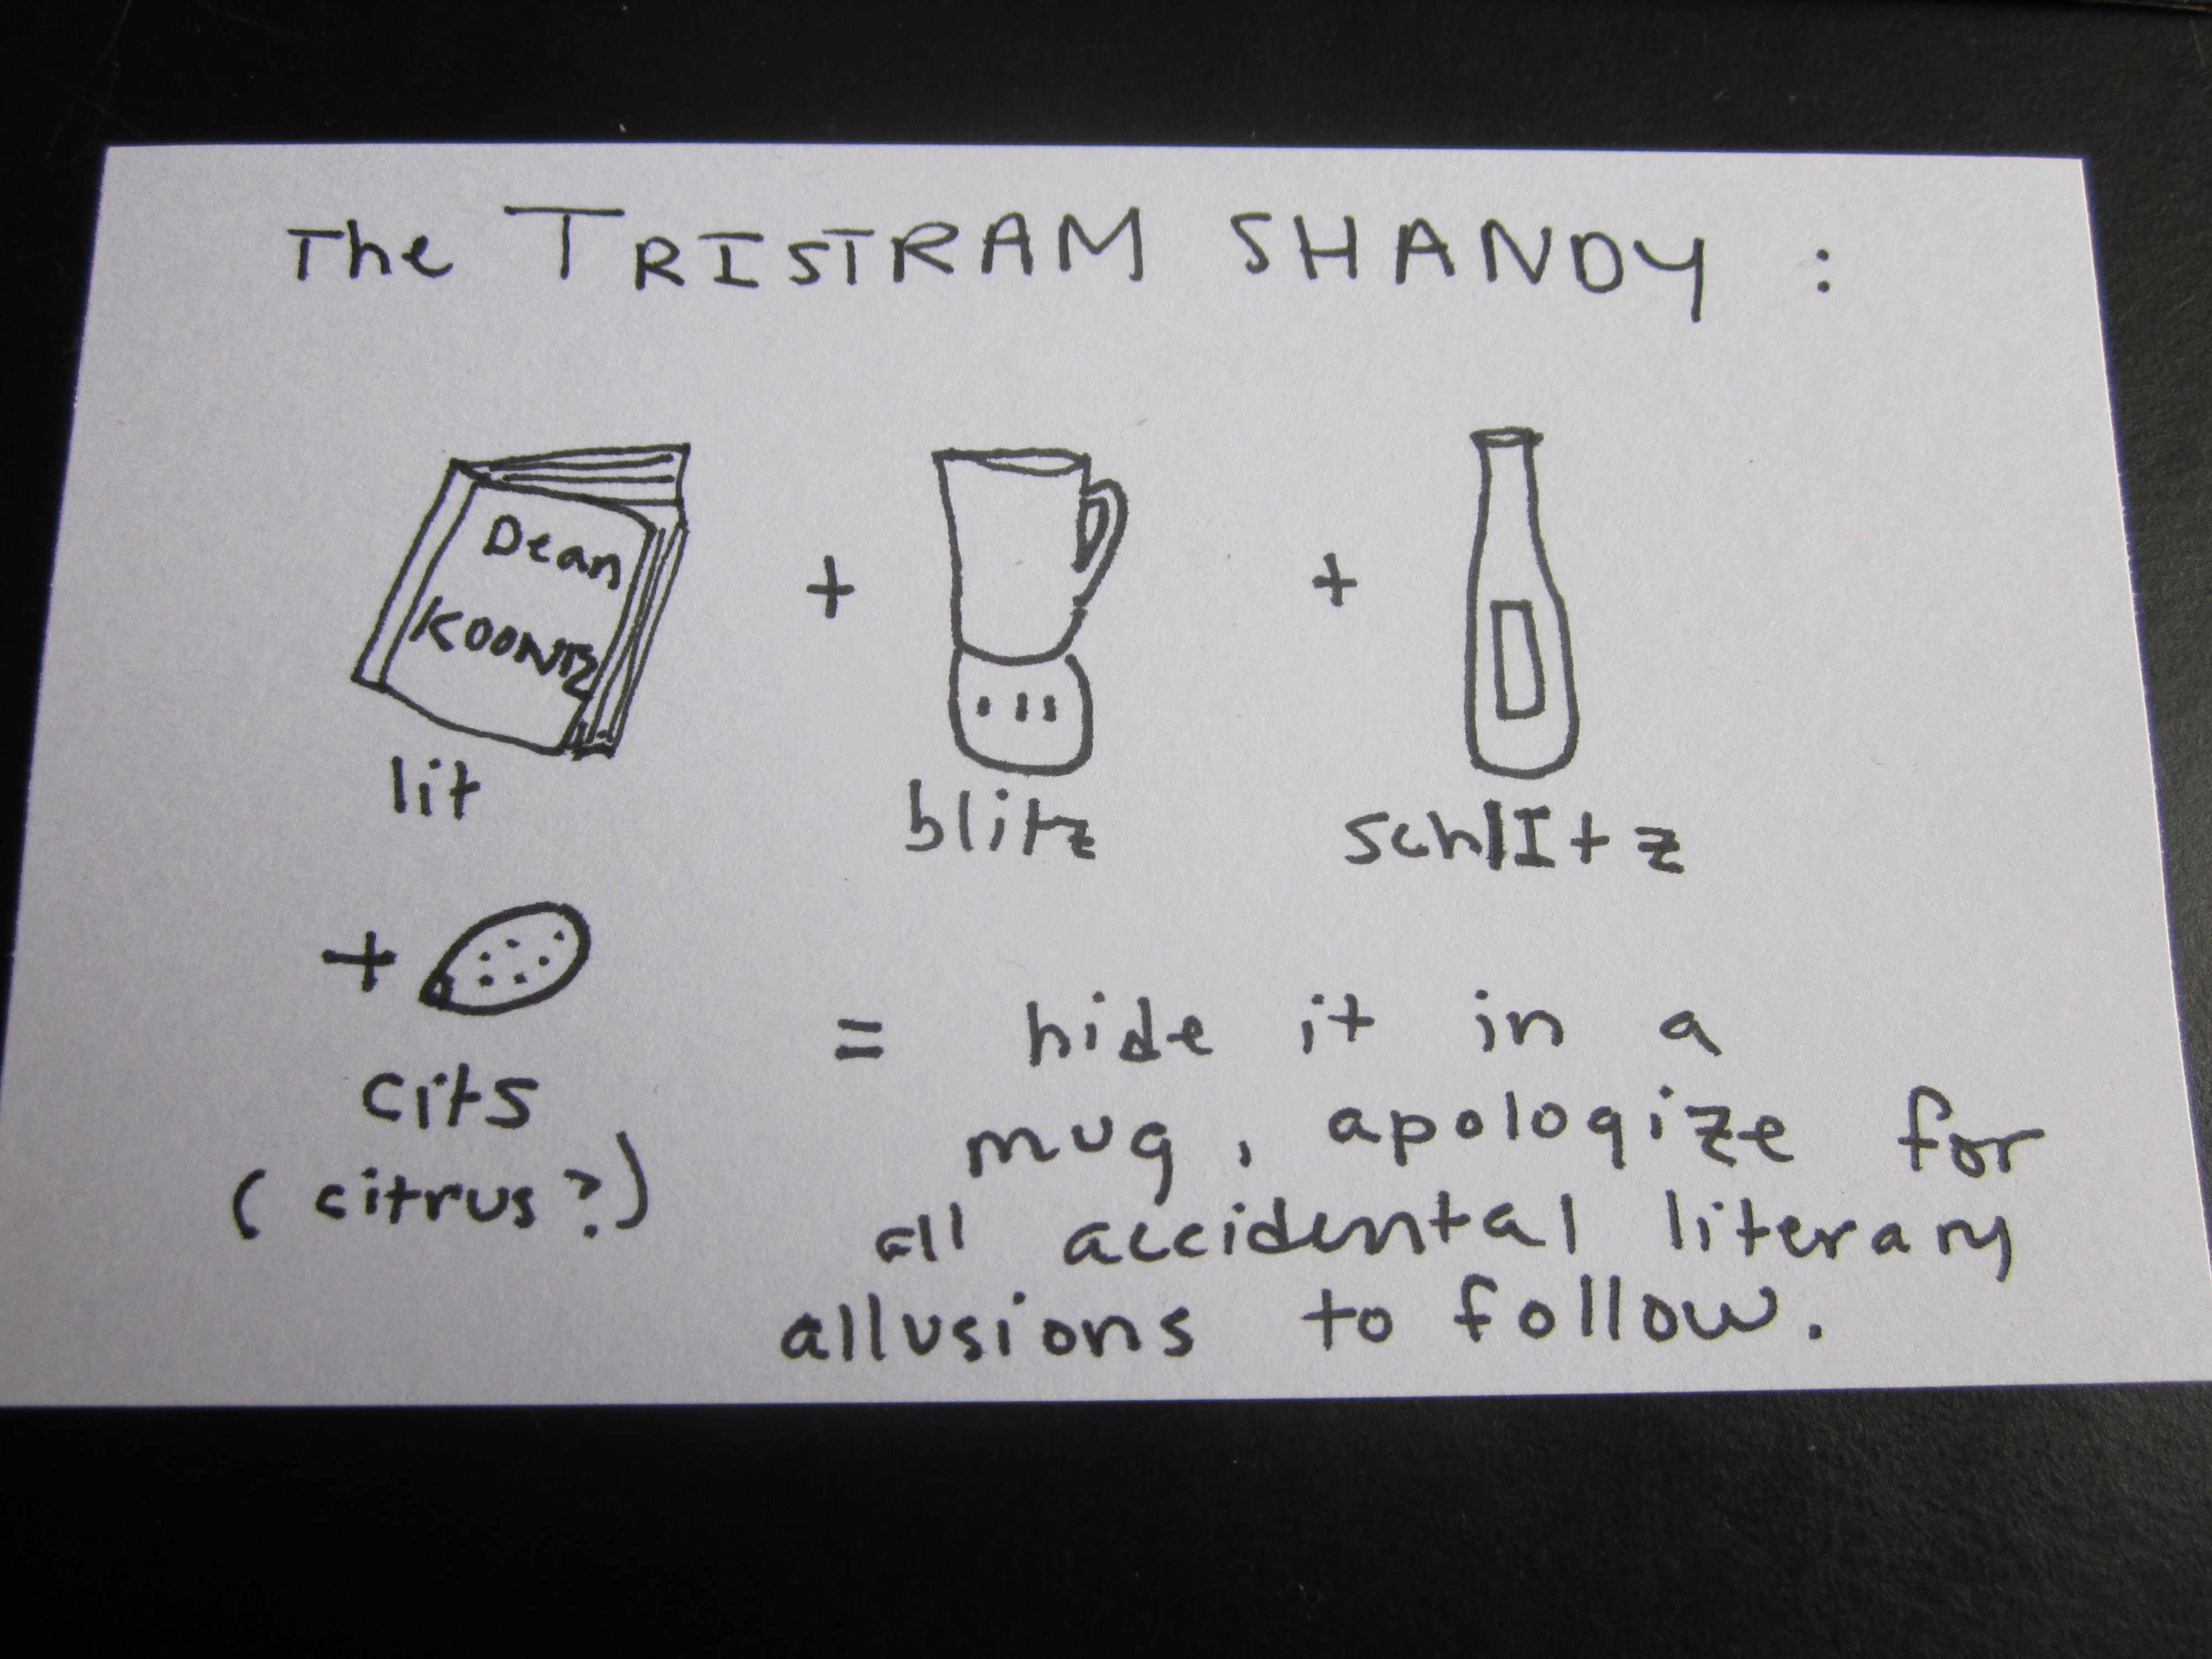 The TRISTRAM SHANDY :
Dean
KOONTZ
+
+
lit
blitz
schlItz
+
cits
(citrus?)
= hide it in a
mug, apologize for
all accidental literary
allusions to follow.